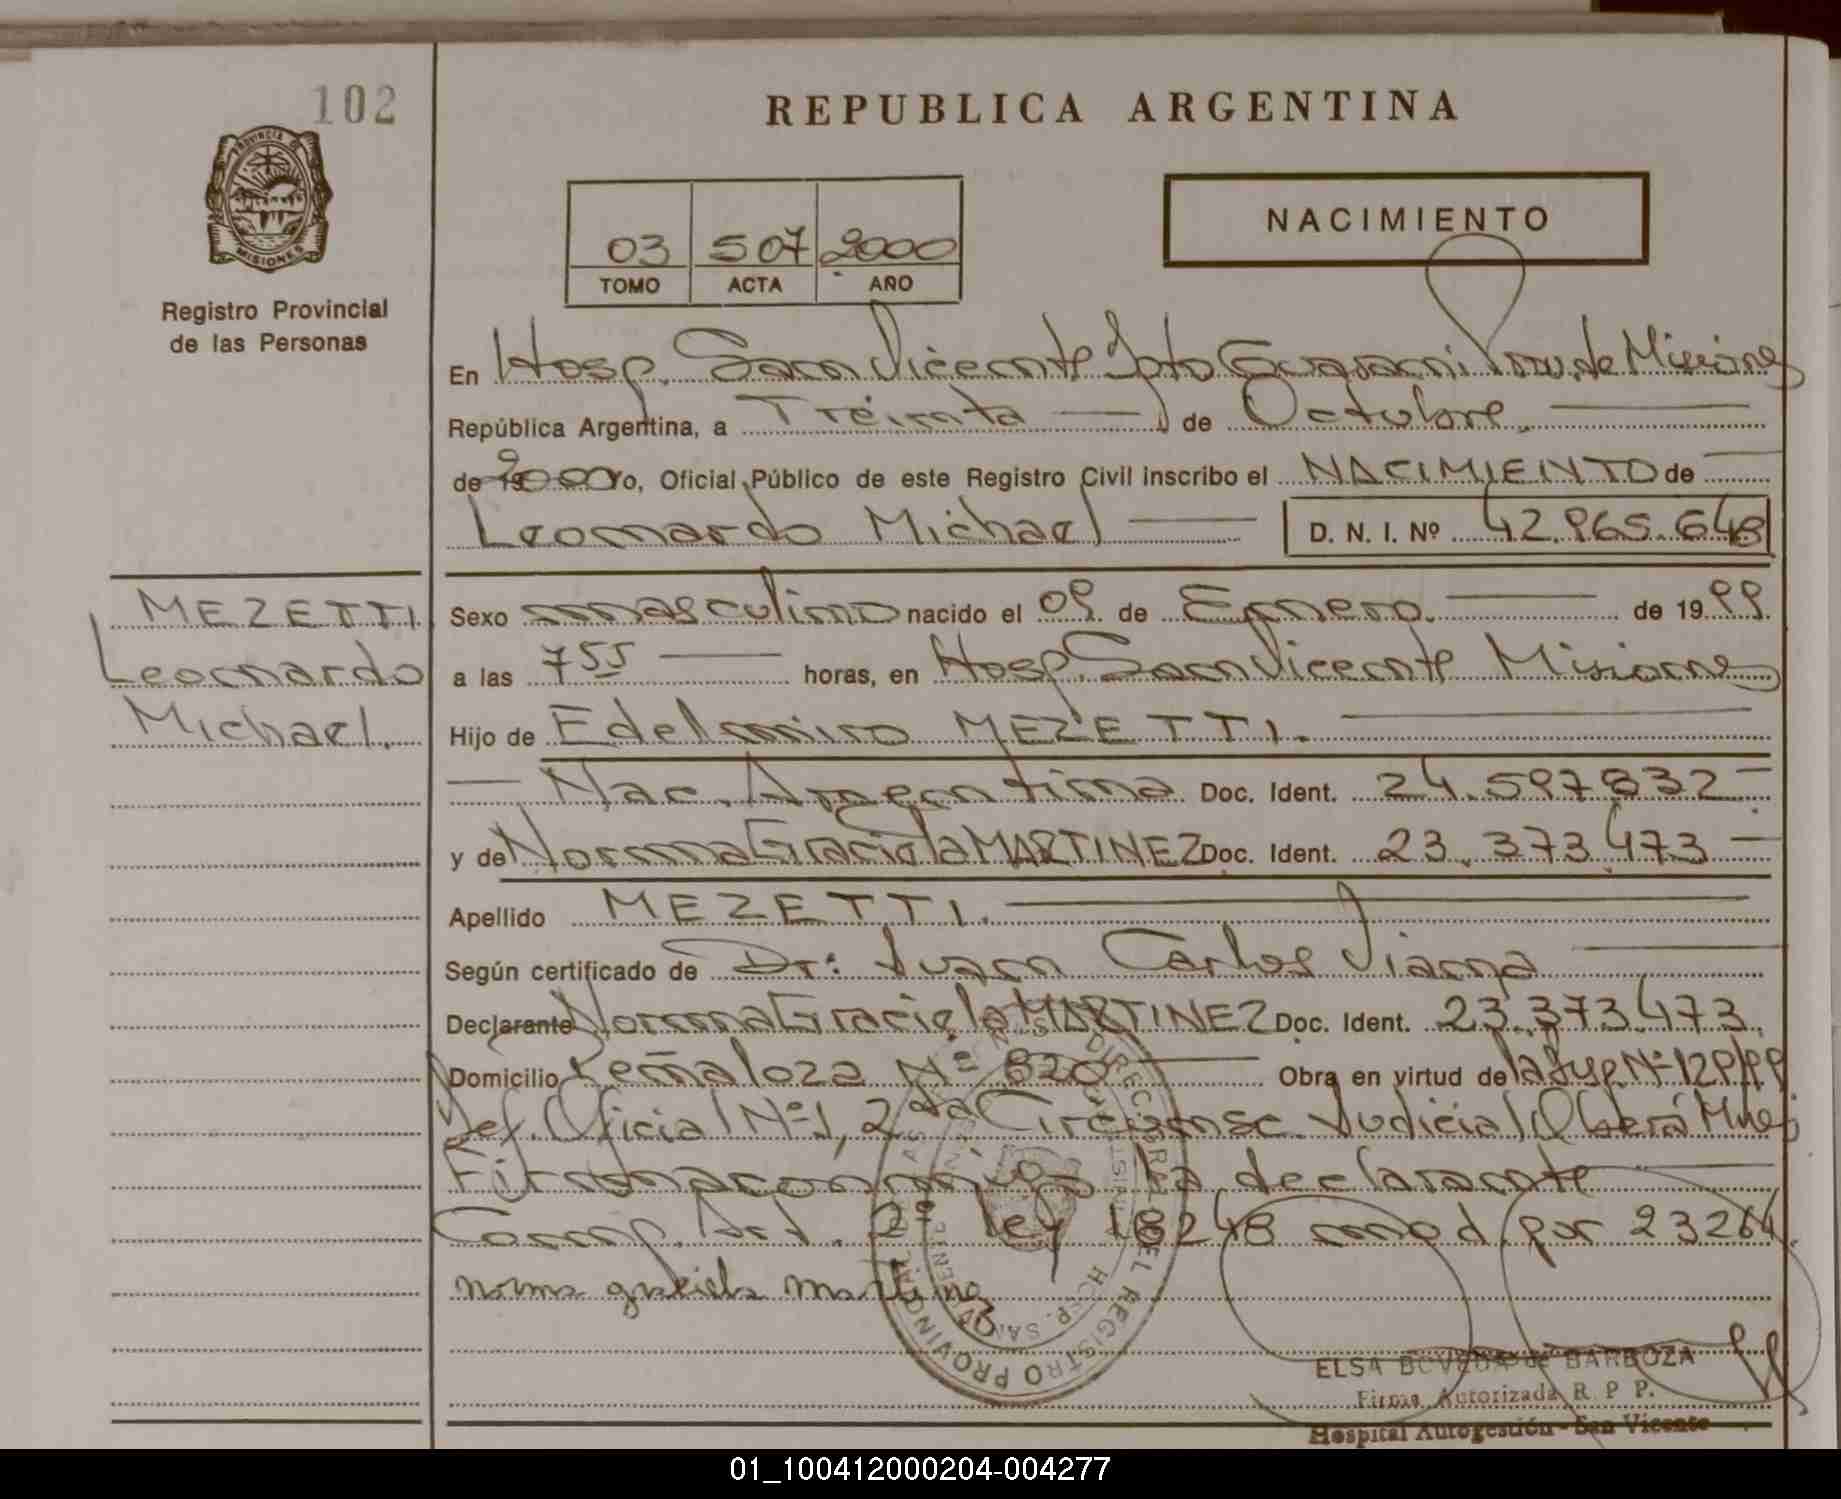 102
REPUBLICA ARGENTINA
PROVINCIA
MISIONES
Registro Provincial
de las Personas
03 507 2000
TOMO ACTA AÑO
NACIMIENTO
En Hosp. San Vicente Dpto Guarani Prov. de Misiones
República Argentina, a Treinta de Octubre
de 2000 Yo, Oficial Público de este Registro Civil inscribo el NACIMIENTO de
Leonardo Michael D. N. I. Nº 42.965.648
MEZETTI
Leonardo
Michael.
Sexo masculino nacido el 09 de Enero de 1999
a las 755 horas, en Hosp. San Vicente Misiones
Hijo de Edelmiro MEZETTI.
Nac. Argentina Doc. Ident. 24.597.832
y de Norma Graciela MARTINEZ Doc. Ident. 23.373.473
Apellido MEZETTI.
Según certificado de Dr: Juan Carlos Viana
Declarante Norma Graciela MARTINEZ Doc. Ident. 23.373.473.
Domicilio Peñaloza Nº 820 Obra en virtud de la Nº 129/99
Def. Oficial Nº 1, 2da Circunsc. Judicial Oberá Mnes
Firma conmigo la declarante
Comp. Art. 2º ley 18248 mod. por 23264.
norma graciela martinez
REGISTRO PROVINCIAL
HOSP. SAN VICENTE
ELSA BOVEDA de BARBOZA
Firma Autorizada R. P. P.
Hospital Autogestión - San Vicente
01_100412000204-004277